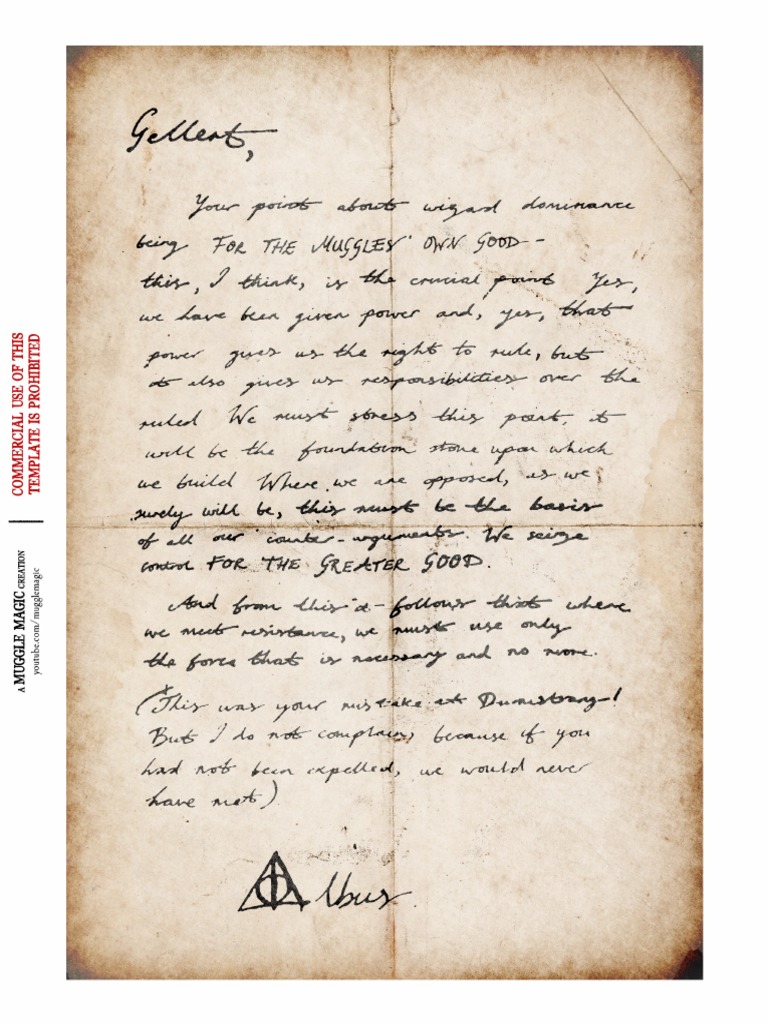 Gellert,
Your point about wizard dominance
being FOR THE MUGGLES' OWN GOOD –
this, I think, is the crucial point Yes,
we have been given power and, yes, that
power gives us the right to rule, but
it also gives us responsibilities over the
ruled We must stress this point, it
will be the foundation stone upon which
we build Where we are opposed, as we
surely will be, this must be the basis
of all our counter-arguments. We seize
control FOR THE GREATER GOOD.
And from this it follows that where
we meet resistance, we must use only
the force that is necessary and no more.
(This was your mistake at Durmstrang!
But I do not complain, because if you
had not been expelled, we would never
have met)
Albus
COMMERCIAL USE OF THIS
TEMPLATE IS PROHIBITED
A MUGGLE MAGIC CREATION
youtube.com/mugglemagic